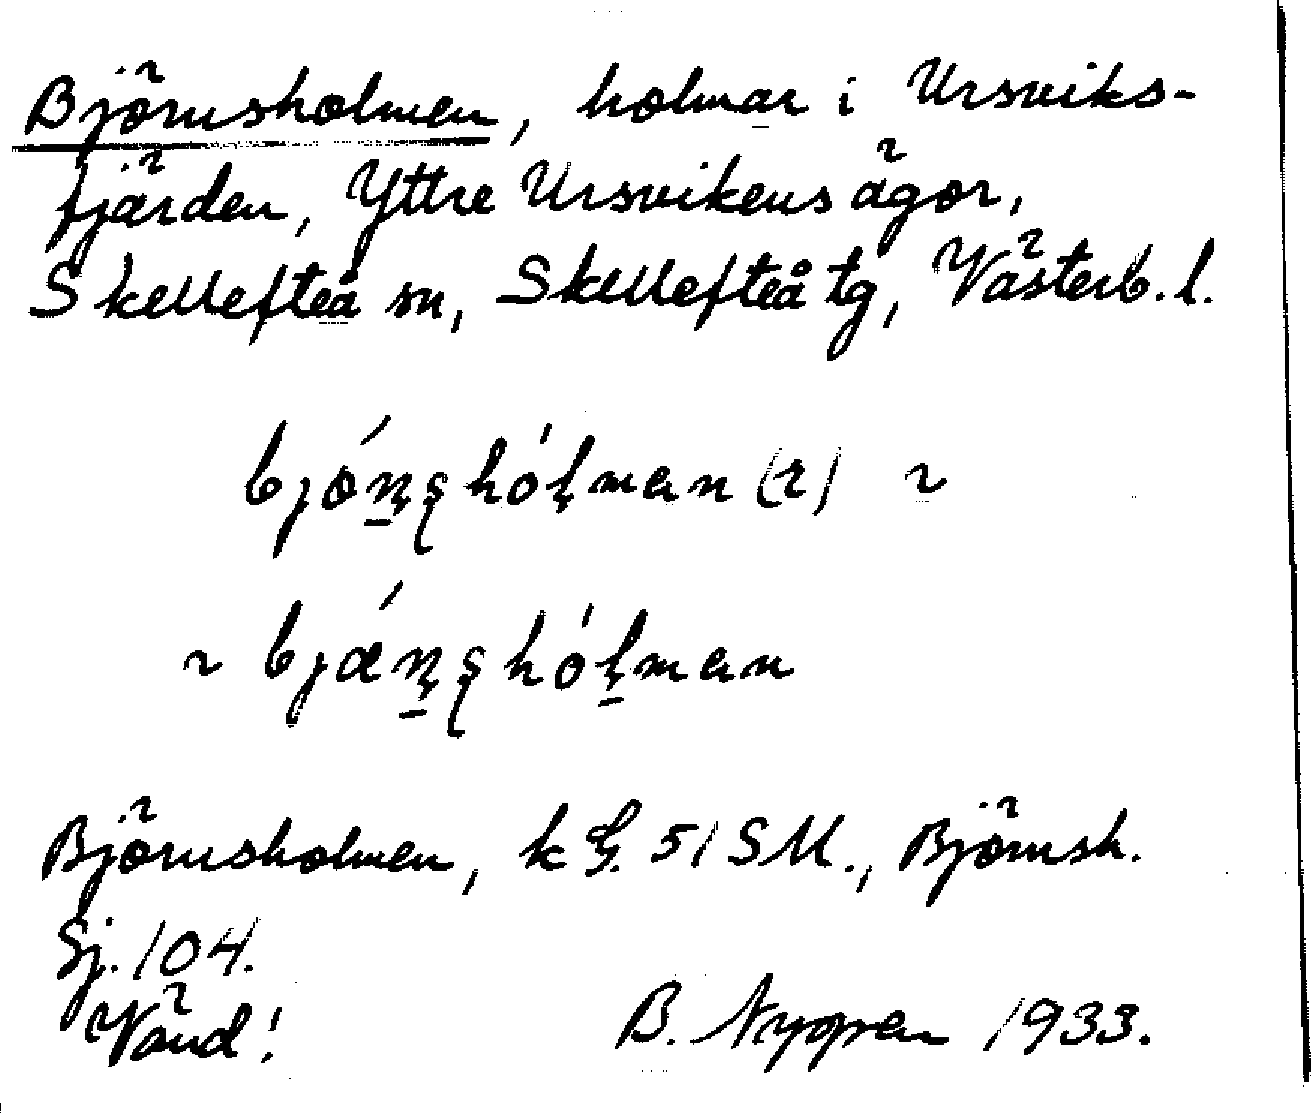 Björnsholmen, holmar i Ursviks-
fjärden, Yttre Ursvikens ägor,
Skellefteå sn, Skellefteå tg, Västerb. l.
bjǿṇʂhóḷman (r) ~
~ bjǽṇʂhóḷman
Björnsholmen, k 51 SM., Björnsh.
Sj. 104.
Vänd!
B. Nyper 1933.